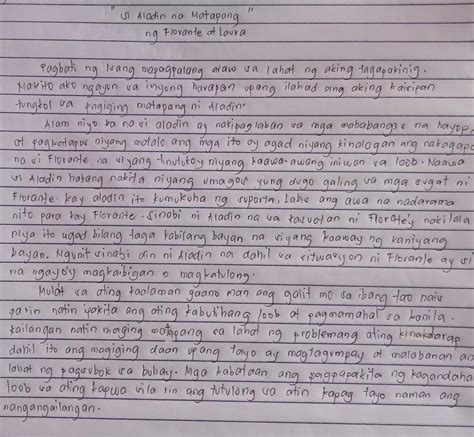 "si Aladin na Matapang"
ng Florante at Laura
Pagbati ng isang mapagpalang araw sa lahat ng aking tagapakinig.
Narito ako ngayon sa inyong harapan upang ilahad ang aking kaisipan
tungkol sa pagiging matapang ni Aladin.
Alam niyo ba na si aladin ay nakipaglaban sa mga mababangis na hayop
at pagkatapos niyang matalo ang mga ito ay agad niyang kinalagan ang nakagapos
na si Florante na siyang tinutukoy niyang kaawa-awang iniwan sa loob. Naawa
si Aladin habang nakita niyang umagos yung dugo galing sa mga sugat ni
Florante. kay aladin ito kumukuha ng suporta. Labis ang awa na nadarama
nito para kay Florante. sinabi ni Aladin na sa kasuotan ni Florate'y nakilala
niya ito ugad bilang taga kabilang bayan na siyang kaaway ng kaniyang
bayan. Ngunit sinabi din ni Aladin na dahil sa sitwasyon ni Florante ay si
na ngayo'y magkaibigan o magkatulong.
Mulat sa ating kaalaman gaano man ang galit mo sa ibang tao nais
parin natin ipakita ang ating kabutihang loob at pagmamahal sa kanila.
kailangan natin maging matapang sa lahat ng problemang ating kinakaharap
dahil ito ang magiging daan upang tayo ay magtagumpay at malabanan an
lahat ng pagsubok sa buhay. Mga kabataan ang pagpapakita ng kagandaha
loob sa ating kapwa sila rin ang tutulong sa atin kapag tayo naman ang
nangangailangan.